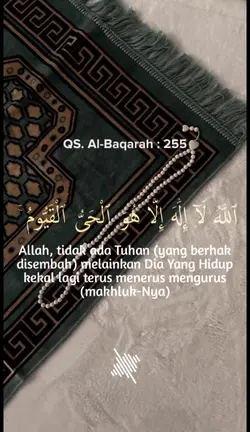 QS. Al-Baqarah : 255
اَللّٰهُ لَآ إِلٰهَ إِلَّا هُوَ اَلْحَىُّ اَلْقَيُّومُ ۚ
Allah, tidak ada Tuhan (yang berhak
disembah) melainkan Dia Yang Hidup
kekal lagi terus menerus mengurus
(makhluk-Nya)